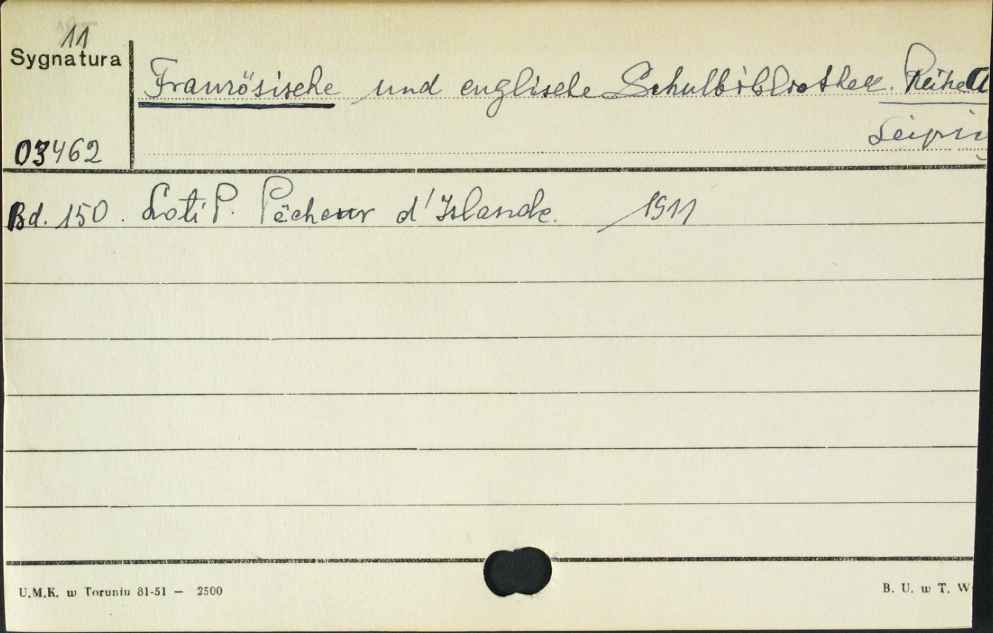 11
Sygnatura
Französische und englische Schulbibliothek. Reihe A
Leipzig
03462
Bd. 150. Loti P. Pêcheur d'Islande. 1911
U.M.K. w Toruniu 81-51 — 2500
B. U. w T. W